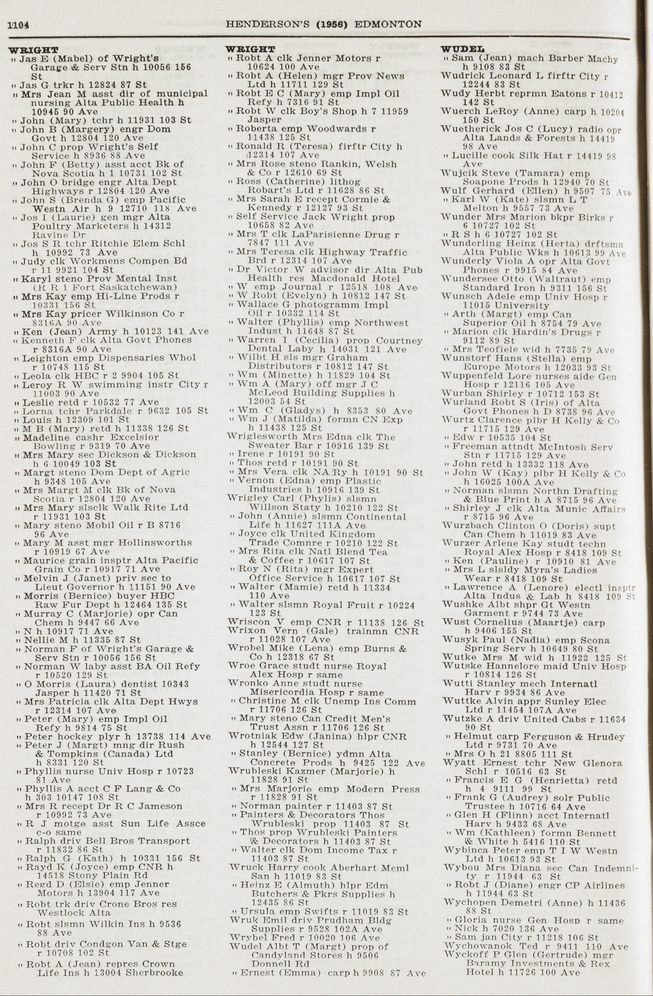 1104
HENDERSON'S (1956) EDMONTON
WRIGHT
" Jas E (Mabel) of Wright's
Garage & Serv Stn h 10056 156
St
" Jas G trkr h 12824 87 St
" Mrs Jean M asst dir of municipal
nursing Alta Public Health h
10945 90 Ave
" John (Mary) tchr h 11931 103 St
" John B (Margery) engr Dom
Govt h 12804 120 Ave
" John C prop Wright's Self
Service h 8936 88 Ave
" John F (Betty) asst acct Bk of
Nova Scotia h 1 10731 102 St
" John O bridge engr Alta Dept
Highways r 12804 120 Ave
" John S (Brenda G) emp Pacific
Westn Air h 9 12710 118 Ave
" Jos I (Laurie) gen mgr Alta
Poultry Marketers h 14312
Ravine Dr
" Jos S R tchr Ritchie Elem Schl
h 10992 73 Ave
" Judy clk Workmens Compen Bd
r 11 9921 104 St
" Karyl steno Prov Mental Inst
(R R 1 Fort Saskatchewan)
" Mrs Kay emp Hi-Line Prods r
10331 156 St
" Mrs Kay pricer Wilkinson Co r
8316A 90 Ave
" Ken (Jean) Army h 10123 141 Ave
" Kenneth F clk Alta Govt Phones
r 8316A 90 Ave
" Leighton emp Dispensaries Whol
r 10748 115 St
" Leola clk HBC r 2 9904 105 St
" Leroy R W swimming instr City r
11003 90 Ave
" Leslie retd r 10532 77 Ave
" Lorna tchr Parkdale r 9632 105 St
" Louis h 12309 101 St
" M B (Mary) retd h 11338 126 St
" Madeline cashr Excelsior
Bowling r 9319 70 Ave
" Mrs Mary sec Dickson & Dickson
h 6 10049 103 St
" Margt steno Dom Dept of Agric
h 9348 105 Ave
" Mrs Margt M clk Bk of Nova
Scotia r 12804 120 Ave
" Mrs Mary slsclk Walk Rite Ltd
r 11931 103 St
" Mary steno Mobil Oil r B 8716
96 Ave
" Mary M asst mgr Hollinsworths
r 10919 67 Ave
" Maurice grain insptr Alta Pacific
Grain Co r 10917 71 Ave
" Melvin J (Janet) priv sec to
Lieut Governor h 11151 90 Ave
" Morris (Bernice) buyer HBC
Raw Fur Dept h 12464 135 St
" Murray C (Marjorie) opr Can
Chem h 9447 66 Ave
" N h 10917 71 Ave
" Nellie M h 11335 87 St
" Norman F of Wright's Garage &
Serv Stn r 10056 156 St
" Norman W laby asst BA Oil Refy
r 10520 129 St
" O Morris (Laura) dentist 10343
Jasper h 11420 71 St
" Mrs Patricia clk Alta Dept Hwys
r 12314 107 Ave
" Peter (Mary) emp Impl Oil
Refy h 9814 75 St
" Peter hockey plyr h 13738 114 Ave
" Peter J (Margt) mng dir Rush
& Tompkins (Canada) Ltd
h 8331 120 St
" Phyllis nurse Univ Hosp r 10723
81 Ave
" Phyllis A acct C F Lang & Co
h 303 10147 108 St
" Mrs R recept Dr R C Jameson
r 10992 73 Ave
" R J motge asst Sun Life Assce
c-o same
" Ralph driv Bell Bros Transport
r 11832 86 St
" Ralph G (Kath) h 10331 156 St
" Rayd K (Joyce) emp CNR h
14518 Stony Plain Rd
" Regd D (Elsie) emp Jenner
Motors h 13904 117 Ave
" Robt trk driv Crone Bros res
Westlock Alta
" Robt slsmn Wilkin Ins h 9536
88 Ave
" Robt driv Condgon Van & Stge
r 10708 102 St
" Robt A (Jean) repres Crown
Life Ins h 13004 Sherbrooke
WRIGHT
" Robt A clk Jenner Motors r
10624 100 Ave
" Robt A (Helen) mgr Prov News
Ltd h 11711 129 St
" Robt E C (Mary) emp Impl Oil
Refy h 7316 91 St
" Robt W clk Boy's Shop h 7 11959
Jasper
" Roberta emp Woodwards r
11438 125 St
" Ronald R (Teresa) firftr City h
12314 107 Ave
" Mrs Rose steno Rankin, Welsh
& Co r 12610 69 St
" Ross (Catherine) lithog
Robart's Ltd r 11628 86 St
" Mrs Sarah E recept Cormie &
Kennedy r 12127 93 St
" Self Service Jack Wright prop
10658 82 Ave
" Mrs T clk LaParisienne Drug r
7847 111 Ave
" Mrs Teresa clk Highway Traffic
Brd r 12314 107 Ave
" Dr Victor W advisor dir Alta Pub
Health res Macdonald Hotel
" W emp Journal r 12518 108 Ave
" W Robt (Evelyn) h 10812 147 St
" Wallace G photogramm Impl
Oil r 10332 114 St
" Walter (Phyllis) emp Northwest
Indust h 11648 87 St
" Warren I (Cecilia) prop Courtney
Dental Laby h 14031 121 Ave
" Wilbt H sls mgr Graham
Distributors r 10812 147 St
" Wm (Minette) h 11829 104 St
" Wm A (Mary) off mgr J C
McLeod Building Supplies h
12003 54 St
" Wm C (Gladys) h 8353 80 Ave
" Wm J (Matilda) formn CN Exp
h 11438 125 St
Wriglesworth Mrs Edna clk The
Sweater Bar r 10916 139 St
" Irene r 10191 90 St
" Thos retd r 10191 90 St
" Mrs Vera clk NA Ry h 10191 90 St
" Vernon (Edna) emp Plastic
Industries h 10916 139 St
Wrigley Carl (Phyls) slsmn
Willson Staty h 10210 122 St
" John (Annie) slsmn Continental
Life h 11627 111A Ave
" Joyce clk United Kingdom
Trade Comnr r 10210 122 St
" Mrs Rita clk Natl Blend Tea
& Coffee r 10617 107 St
" Roy N (Rita) mgr Expert
Office Service h 10617 107 St
" Walter (Mamie) retd h 11334
110 Ave
" Walter slsmn Royal Fruit r 10224
123 St
Wriscon V emp CNR r 11138 126 St
Wrixon Vern (Gale) trainmn CNR
r 11028 107 Ave
Wrobel Mike (Lena) emp Burns &
Co h 12318 67 St
Wroe Grace studt nurse Royal
Alex Hosp r same
Wronko Anne studt nurse
Misericordia Hosp r same
" Christine M clk Unemp Ins Comm
r 11706 126 St
" Mary steno Can Credit Men's
Trust Assn r 11706 126 St
Wrotniak Edw (Janina) hlpr CNR
h 12544 127 St
" Stanley (Bernice) ydmn Alta
Concrete Prods h 9425 122 Ave
Wrubleski Kazmer (Marjorie) h
11828 91 St
" Mrs Marjorie emp Modern Press
r 11828 91 St
" Norman painter r 11403 87 St
" Painters & Decorators Thos
Wrubleski prop 11403 87 St
" Thos prop Wrubleski Painters
& Decorators h 11403 87 St
" Walter clk Dom Income Tax r
11403 87 St
Wruck Harry cook Aberhart Meml
San h 11019 83 St
" Heinz E (Almuth) hlpr Edm
Butchers & Pkrs Supplies h
12435 86 St
" Ursula emp Swifts r 11019 83 St
Wruk Emil driv Prudham Bldg
Supplies r 9528 102A Ave
Wrybel Fred r 10020 106 Ave
Wudel Albt T (Margt) prop of
Candyland Stores h 9506
Donnell Rd
" Ernest (Emma) carp h 9908 87 Ave
WUDEL
" Sam (Jean) mach Barber Machy
h 9108 83 St
Wudrick Leonard L firftr City r
12244 83 St
Wudy Herbt reprmn Eatons r 10412
142 St
Wuerch LeRoy (Anne) carp h 10204
150 St
Wuetherick Jos C (Lucy) radio opr
Alta Lands & Forests h 14419
98 Ave
" Lucille cook Silk Hat r 14419 98
Ave
Wujcik Steve (Tamara) emp
Soapone Prods h 12940 70 St
Wulf Gerhard (Ellen) h 9507 75 Ave
" Karl W (Kate) slsmn L T
Melton h 9557 73 Ave
Wunder Mrs Marion bkpr Birks r
6 10727 102 St
" R S h 6 10727 102 St
Wunderling Heinz (Herta) drftsmn
Alta Public Wks h 10613 99 Av
Wunderly Viola A opr Alta Govt
Phones r 9915 84 Ave
Wundersee Otto (Waltraut) emp
Standard Iron h 9311 156 St
Wunsch Adele emp Univ Hosp r
11015 University
" Arth (Margt) emp Can
Superior Oil h 8754 79 Ave
" Marion clk Hardin's Drugs r
9112 89 St
" Mrs Teofiele wid h 7735 79 Ave
Wunstorf Hans (Stella) emp
Europe Motors h 12033 93 St
Wuppenfeld Lore nurses aide Gen
Hosp r 12116 105 Ave
Wurban Shirley r 10712 153 St
Wurland Robt S (Iris) of Alta
Govt Phones h D 8738 96 Ave
Wurtz Clarence plbr H Kelly & Co
r 11715 129 Ave
" Edw r 10535 104 St
" Freeman attndt McIntosh Serv
Stn r 11715 129 Ave
" John retd h 13332 118 Ave
" John W (Kay) plbr H Kelly & Co
h 16025 100A Ave
" Norman slsmn Northn Drafting
& Blue Print h A 8715 96 Ave
" Shirley J clk Alta Munic Affairs
r 8715 96 Ave
Wurzbach Clinton O (Doris) supt
Can Chem h 11019 83 Ave
Wurzer Arlene Kay studt techn
Royal Alex Hosp r 8418 109 St
" Ken (Pauline) r 10910 81 Ave
" Mrs L slsldy Myra's Ladies
Wear r 8418 109 St
" Lawrence A (Lenore) electl insptr
Alta Indus & Lab h 8418 109 St
Wushke Albt shpr Gt Westn
Garment r 9744 73 Ave
Wust Cornelius (Maartje) carp
h 9406 155 St
Wusyk Paul (Nadia) emp Scona
Spring Serv h 10649 80 St
Wutke Mrs M wid h 11922 125 St
Wutske Hannelore maid Univ Hosp
r 10814 126 St
Wutti Stanley mech Internatl
Harv r 9934 86 Ave
Wuttke Alvin appr Sunley Elec
Ltd r 11454 107A Ave
Wutzke A driv United Cabs r 11634
90 St
" Helmut carp Ferguson & Hrudey
Ltd r 9731 70 Ave
" Mrs O h 21 8805 111 St
Wyatt Ernest tchr New Glenora
Schl r 10516 63 St
" Francis E G (Henrietta) retd
h 4 9111 99 St
" Frank G (Audrey) solr Public
Trustee h 10716 64 Ave
" Glen H (Flinn) acct Internatl
Harv h 9433 68 Ave
" Wm (Kathleen) formn Bennett
& White h 5416 110 St
Wybinca Peter emp T I W Westn
Ltd h 10613 93 St
Wybou Mrs Diana sec Can Indemni-
ty r 11944 63 St
" Robt J (Diane) engr CP Airlines
h 11944 63 St
Wychopen Demetri (Anne) h 11436
88 St
" Gloria nurse Gen Hosp r same
" Nick h 7020 136 Ave
" Sam jan City r 11218 106 St
Wychowanok Ted r 9411 110 Ave
Wyckoff P Glen (Gertrude) mgr
Baramy Investments & Rex
Hotel h 11726 100 Ave